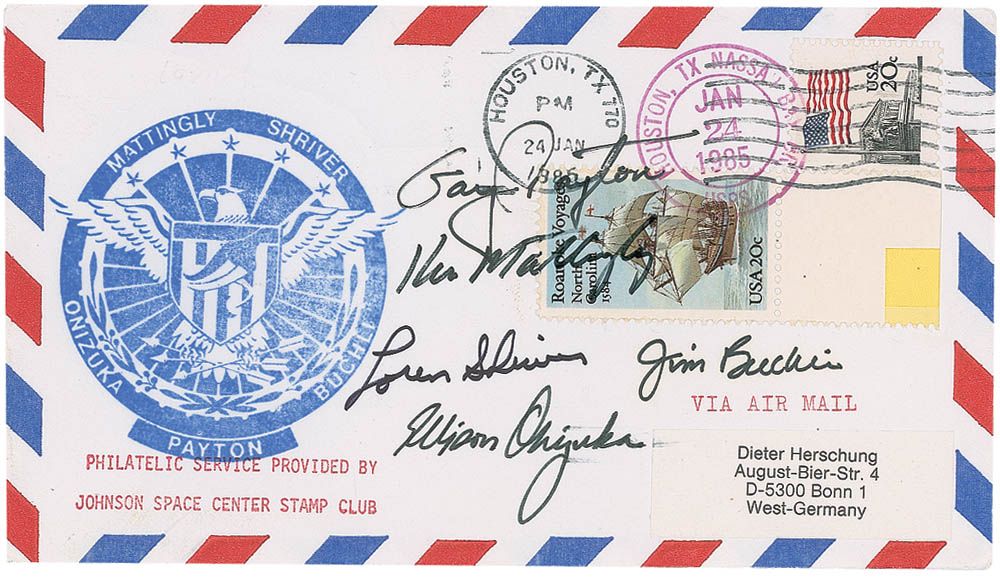 MATTINGLY SHRIVER
ONIZUKA
BUCHLI
PAYTON
HOUSTON, TX 770
PM
24 JAN
1985
HOUSTON, TX NASSA
JAN
24
1985
USA
20c
Roanoke Voyages
North
Carolina
1584
USA 20c
Gary Payton
Ken Mattingly
Loren Shriver
Jim Buchli
Ellison Onizuka
VIA AIR MAIL
PHILATELIC SERVICE PROVIDED BY
JOHNSON SPACE CENTER STAMP CLUB
Dieter Herschung
August-Bier-Str. 4
D-5300 Bonn 1
West-Germany